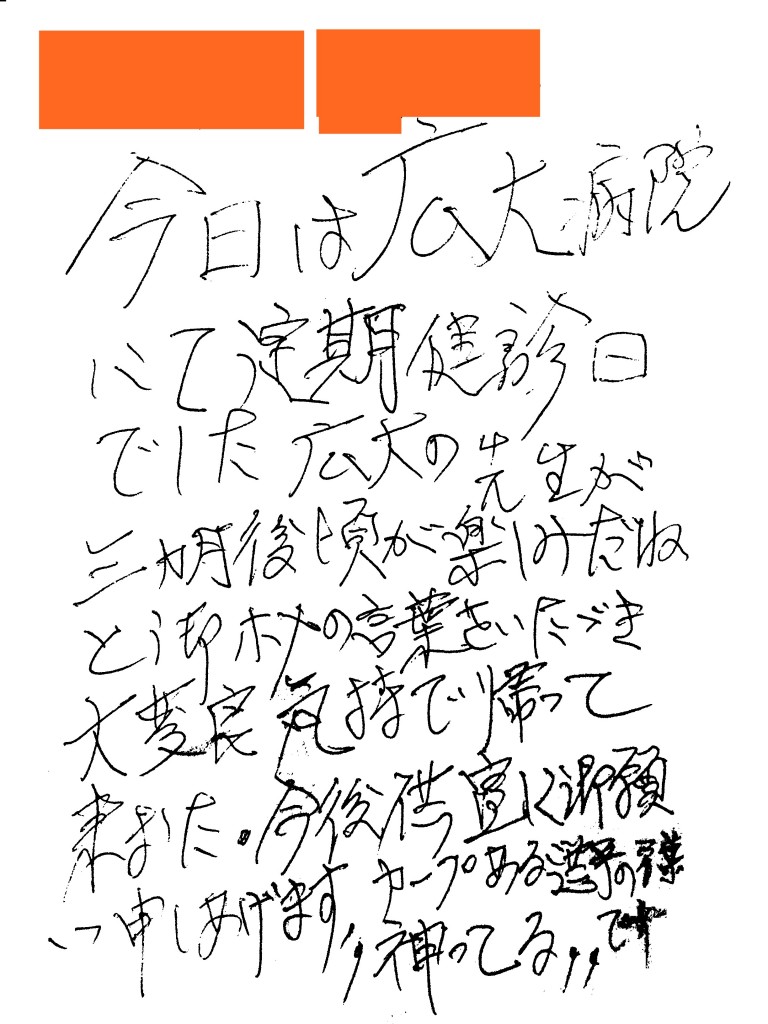 今日は広大病院
にて定期健診日
でした広大の先生が
三ヵ月後頃が楽しみだね
と御ホメの言葉をいただき
大変良気持で帰って
来ました。今後供宜しく御願
い申しあげます，カープある選手の
"神ってる"です